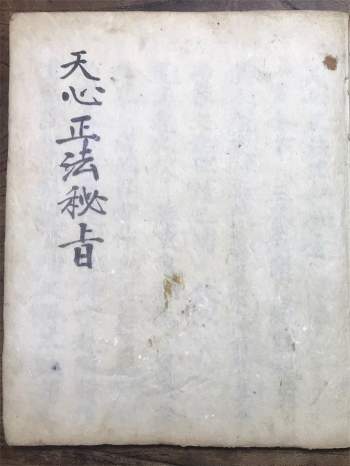 天心正法秘旨